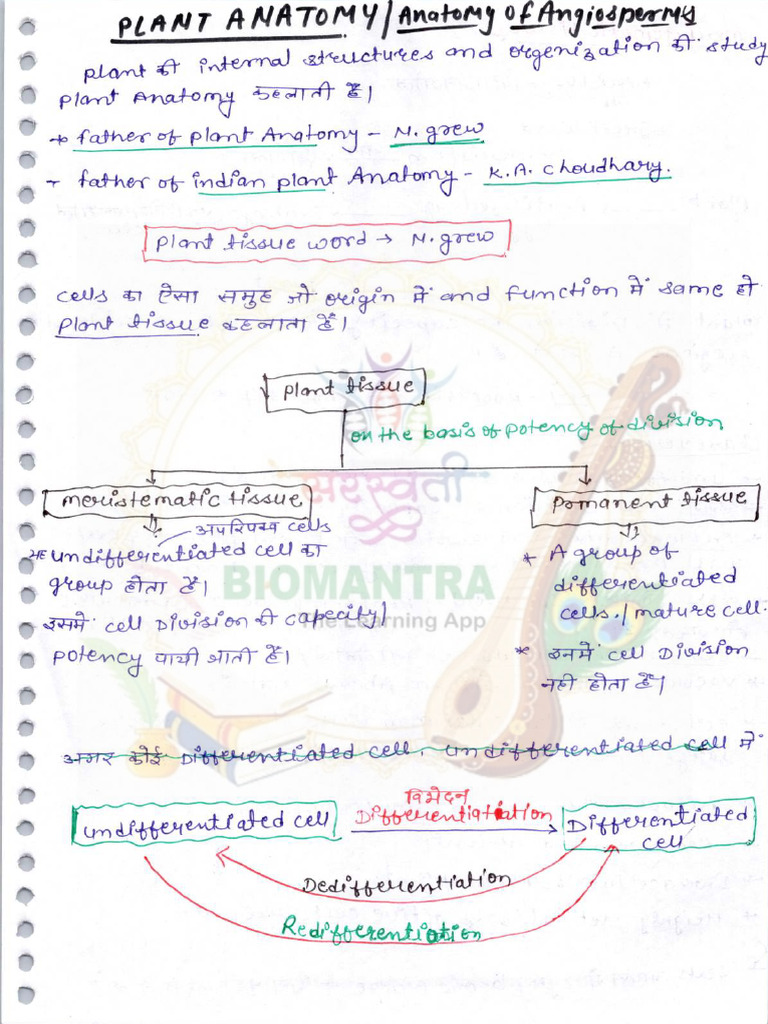 PLANT ANATOMY/Anatomy of Angiosperms
plant की internal structures and orgenization की study
plant Anatomy कहलाती है।
→ father of plant Anatomy – N. grew
- father of indian plant Anatomy – K.A. Choudhary.
plant tissue word → N. grew
cells का ऐसा समुह जो origin में and function में same हो
plant tissue कहलाता है।
plant tissue
on the basis of potency of division
सरस्वती
meristematic tissue
pomanent tissue
अपरिपक्व cells
यह undifferentiated cell का
group होता है।
इसमे cell Division की capacity/
potency पायी जाती है।
* A group of
differentiated
cells./mature cell.
* इनमें cell Division
नही होता है।
BIOMANTRA
The Learning App
अगर कोई Differentiated cell, undifferentiated cell में
undifferentiated cell
विभेदन
Differentiation
Differentiated
cell
Dedifferentiation
Redifferentiation